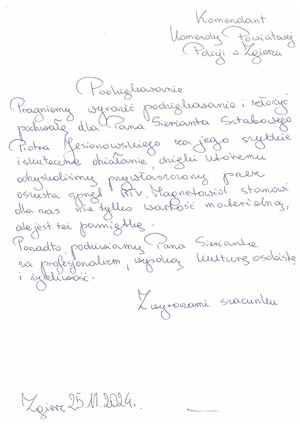 Komendant
Komendy Powiatowej
Policji w Zgierzu
Podziękowanie
Pragniemy wyrazić podziękowanie i złożyć
pochwałę dla Pana Sierżanta Sztabowego
Piotra Jesionowskiego za jego szybkie
i skuteczne działanie, dzięki któremu
odzyskaliśmy przywłaszczony przez
oszusta sprzęt RTV. Magnetowid stanowi
dla nas nie tylko wartość materialną,
ale jest też pamiątką.
Ponadto, podziwiamy Pana Sierżanta
za profesjonalizm, wysoką kulturę osobistą
i życzliwość.
Z wyrazami szacunku
Zgierz 25.11.2024.